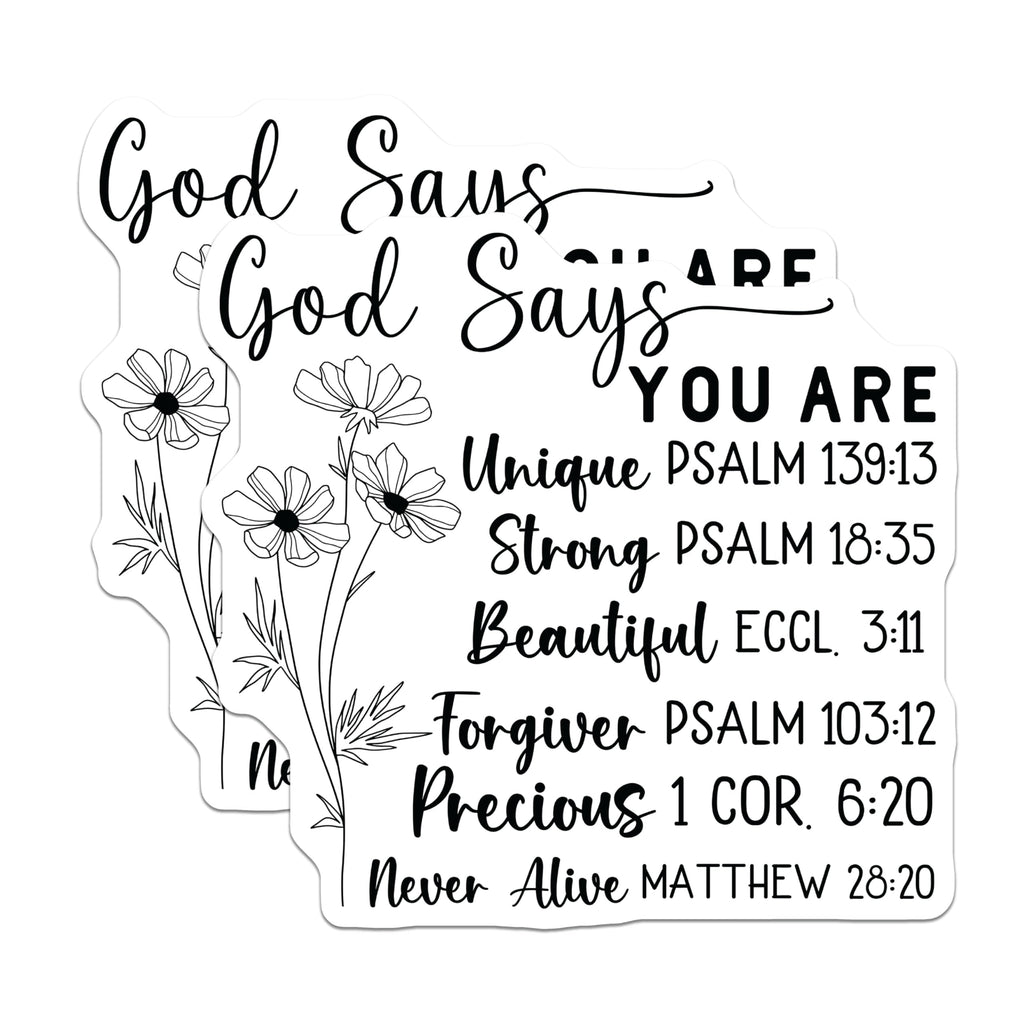 God Says
YOU ARE
Ne
God Says
YOU ARE
Unique PSALM 139:13
Strong PSALM 18:35
Beautiful ECCL. 3:11
Forgiver PSALM 103:12
Precious 1 COR. 6:20
Never Alive MATTHEW 28:20